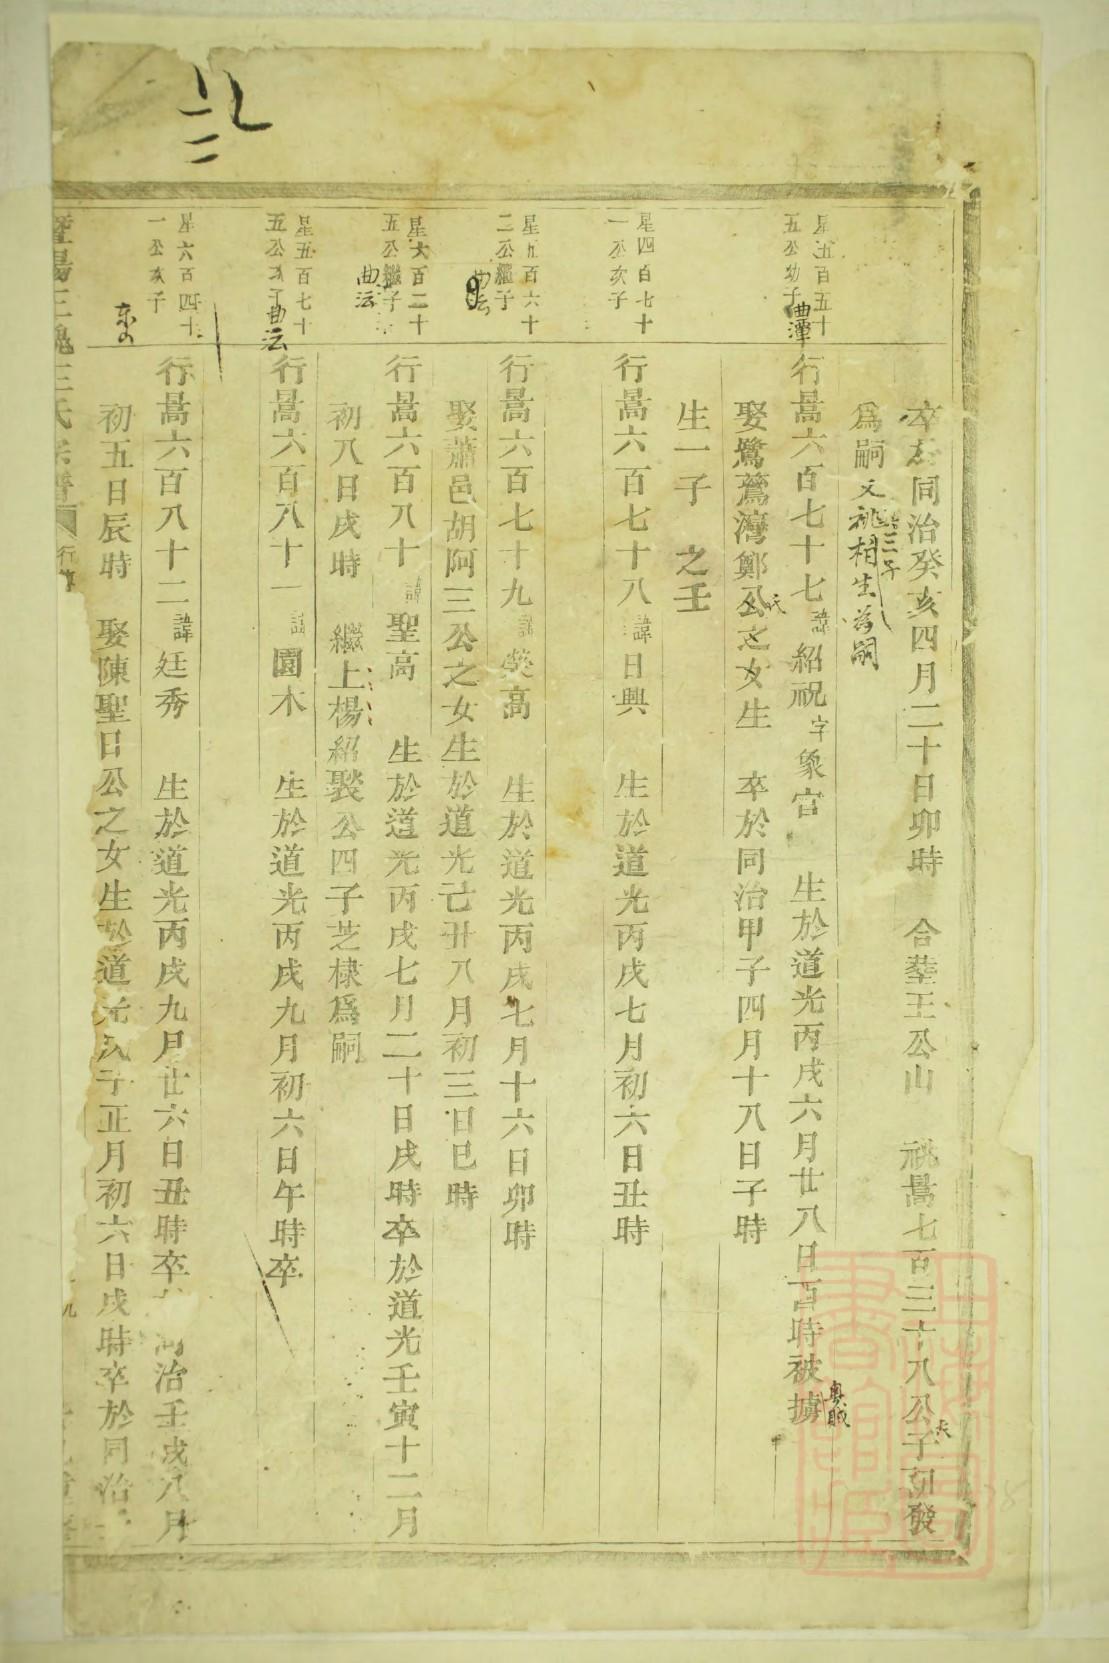 卒於同治癸亥四月二十日卯時 合塟王公山 祧暠七百三十八公子如發
爲嗣 又祧相生爲嗣
星五百五十
五公幼子
曲潭
行暠六百七十七 諱紹祝 字象宮 生於道光丙戌六月廿八日酉時被擄
娶鷺鷥灣鄭公之女生 卒於同治甲子四月十八日子時
生一子 之壬
星四百七十
一公次子
行暠六百七十八 諱日興 生於道光丙戌七月初六日丑時
星五百六十
二公繼子
行暠六百七十九 諱榮高 生於道光丙戌七月十六日卯時
娶蕭邑胡阿三公之女生於道光己丑八月初三日巳時
星六百二十
五公繼子
曲沄
行暠六百八十 諱聖高 生於道光丙戌七月二十日戌時卒於道光壬寅十二月
初八日戌時 繼上楊紹褧公四子芝棣爲嗣
星五百七十
五公次子
曲沄
行暠六百八十一 諱園木 生於道光丙戌九月初六日午時卒
星六百四十
一公次子
行暠六百八十二 諱廷秀 生於道光丙戌九月廿六日丑時卒 同治壬戌八月
初五日辰時 娶陳聖日公之女生於道光 子正月初六日戌時卒於同治
暨陽 王氏宗譜 行